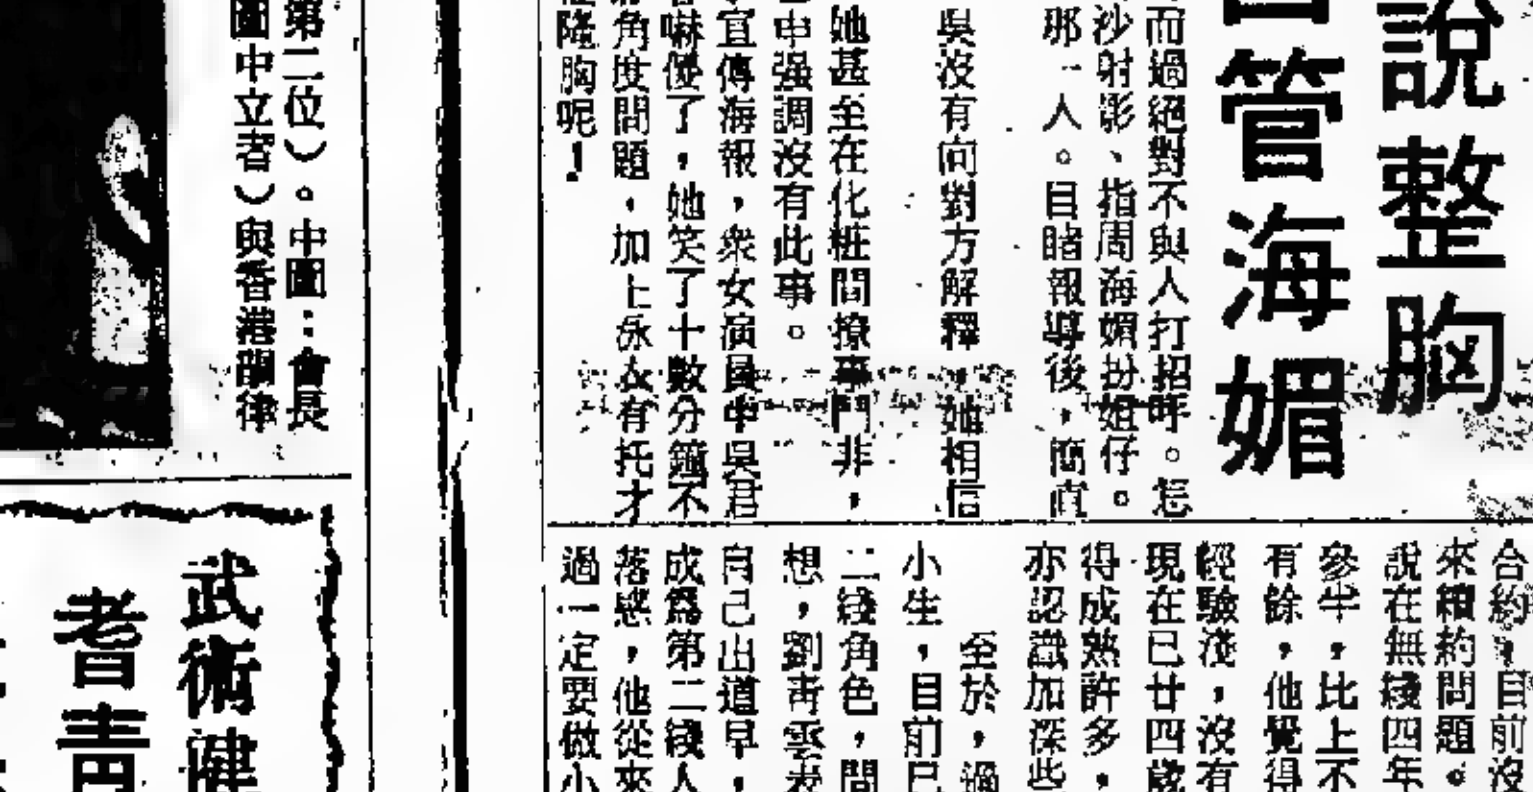 說整胸
管海媚
而過絕對不與人打招呼。怎
沙射影、指周海媚扮姐仔。
那一人。目睹報導後，簡直
吳沒有向對方解釋，她相信
她甚至在化粧間撩事鬥非，
中强調沒有此事。
宣傳海報，衆女演員中吳君
嚇傻了，她笑了十數分鐘不
角度問題，加上泳衣有托才
隆胸呢！
合約，目前沒
來續約問題。
說在無綫四年
參半，比上不
有餘，他覺得
經驗淺，沒有
現在已廿四歲
得成熟許多，
亦認識加深些
至於，過
小生，目前已
二綫角色，問
想，劉青雲表
自己出道早，
成爲第二綫人
落感，他從來
過一定要做小
第二位）。中圖：會長
圖中立者）與香港韻律
武術健
耆青